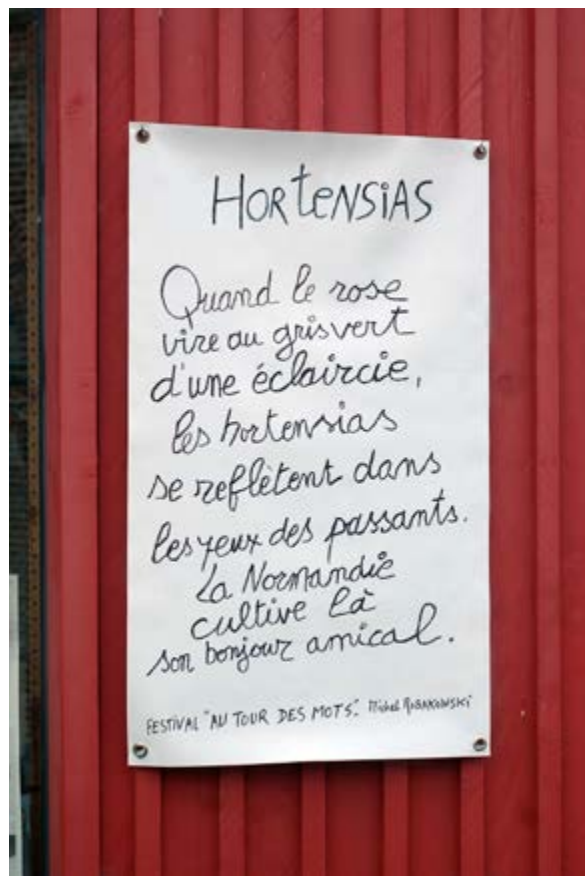 HORTENSiAS
Quand le rose
vire au gris vert
d'une éclaircie,
les hortensias
se reflètent dans
les yeux des passants.
La Normandie
cultive là
son bonjour amical.
FESTIVAL "AU TOUR DES MOTS". Michel ROBAKOWSKI